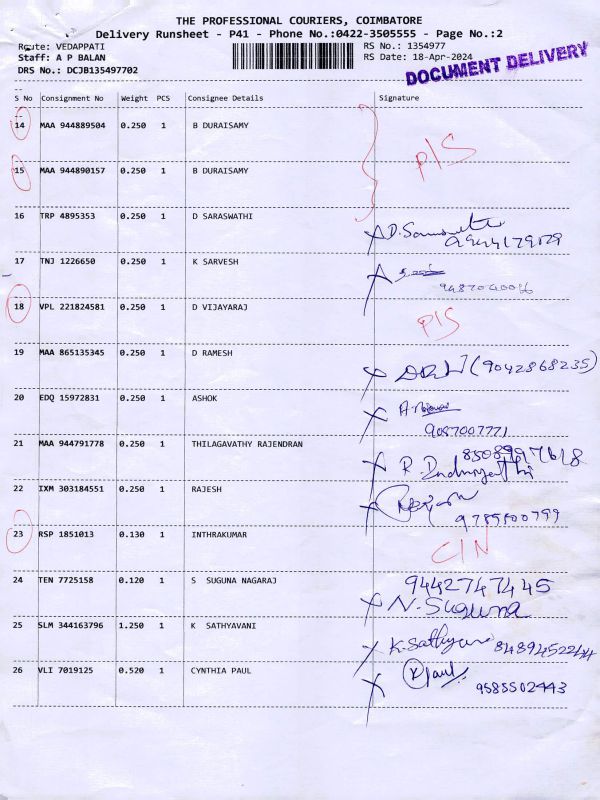 THE PROFESSIONAL COURIERS, COIMBATORE
Delivery Runsheet - P41 - Phone No.:0422-3505555 - Page No.:2
Route: VEDAPPATI RS No.: 1354977
Staff: A P BALAN RS Date: 18-Apr-2024
DRS No.: DCJB135497702
DOCUMENT DELIVERY
S No Consignment No Weight PCS Consignee Details Signature
14 MAA 944889504 0.250 1 B DURAISAMY
P/S
15 MAA 944890157 0.250 1 B DURAISAMY
16 TRP 4895353 0.250 1 D SARASWATHI
17 TNJ 1226650 0.250 1 K SARVESH
18 VPL 221824581 0.250 1 D VIJAYARAJ P/S
19 MAA 865135345 0.250 1 D RAMESH (9042868235)
20 EDQ 15972831 0.250 1 ASHOK
9087007771
21 MAA 944791778 0.250 1 THILAGAVATHY RAJENDRAN
22 IXM 303184551 0.250 1 RAJESH
23 RSP 1851013 0.130 1 INTHRAKUMAR C/N
24 TEN 7725158 0.120 1 S SUGUNA NAGARAJ 9442747445
N. Suguna
25 SLM 344163796 1.250 1 K SATHYAVANI
26 VLI 7019125 0.520 1 CYNTHIA PAUL 9585502443